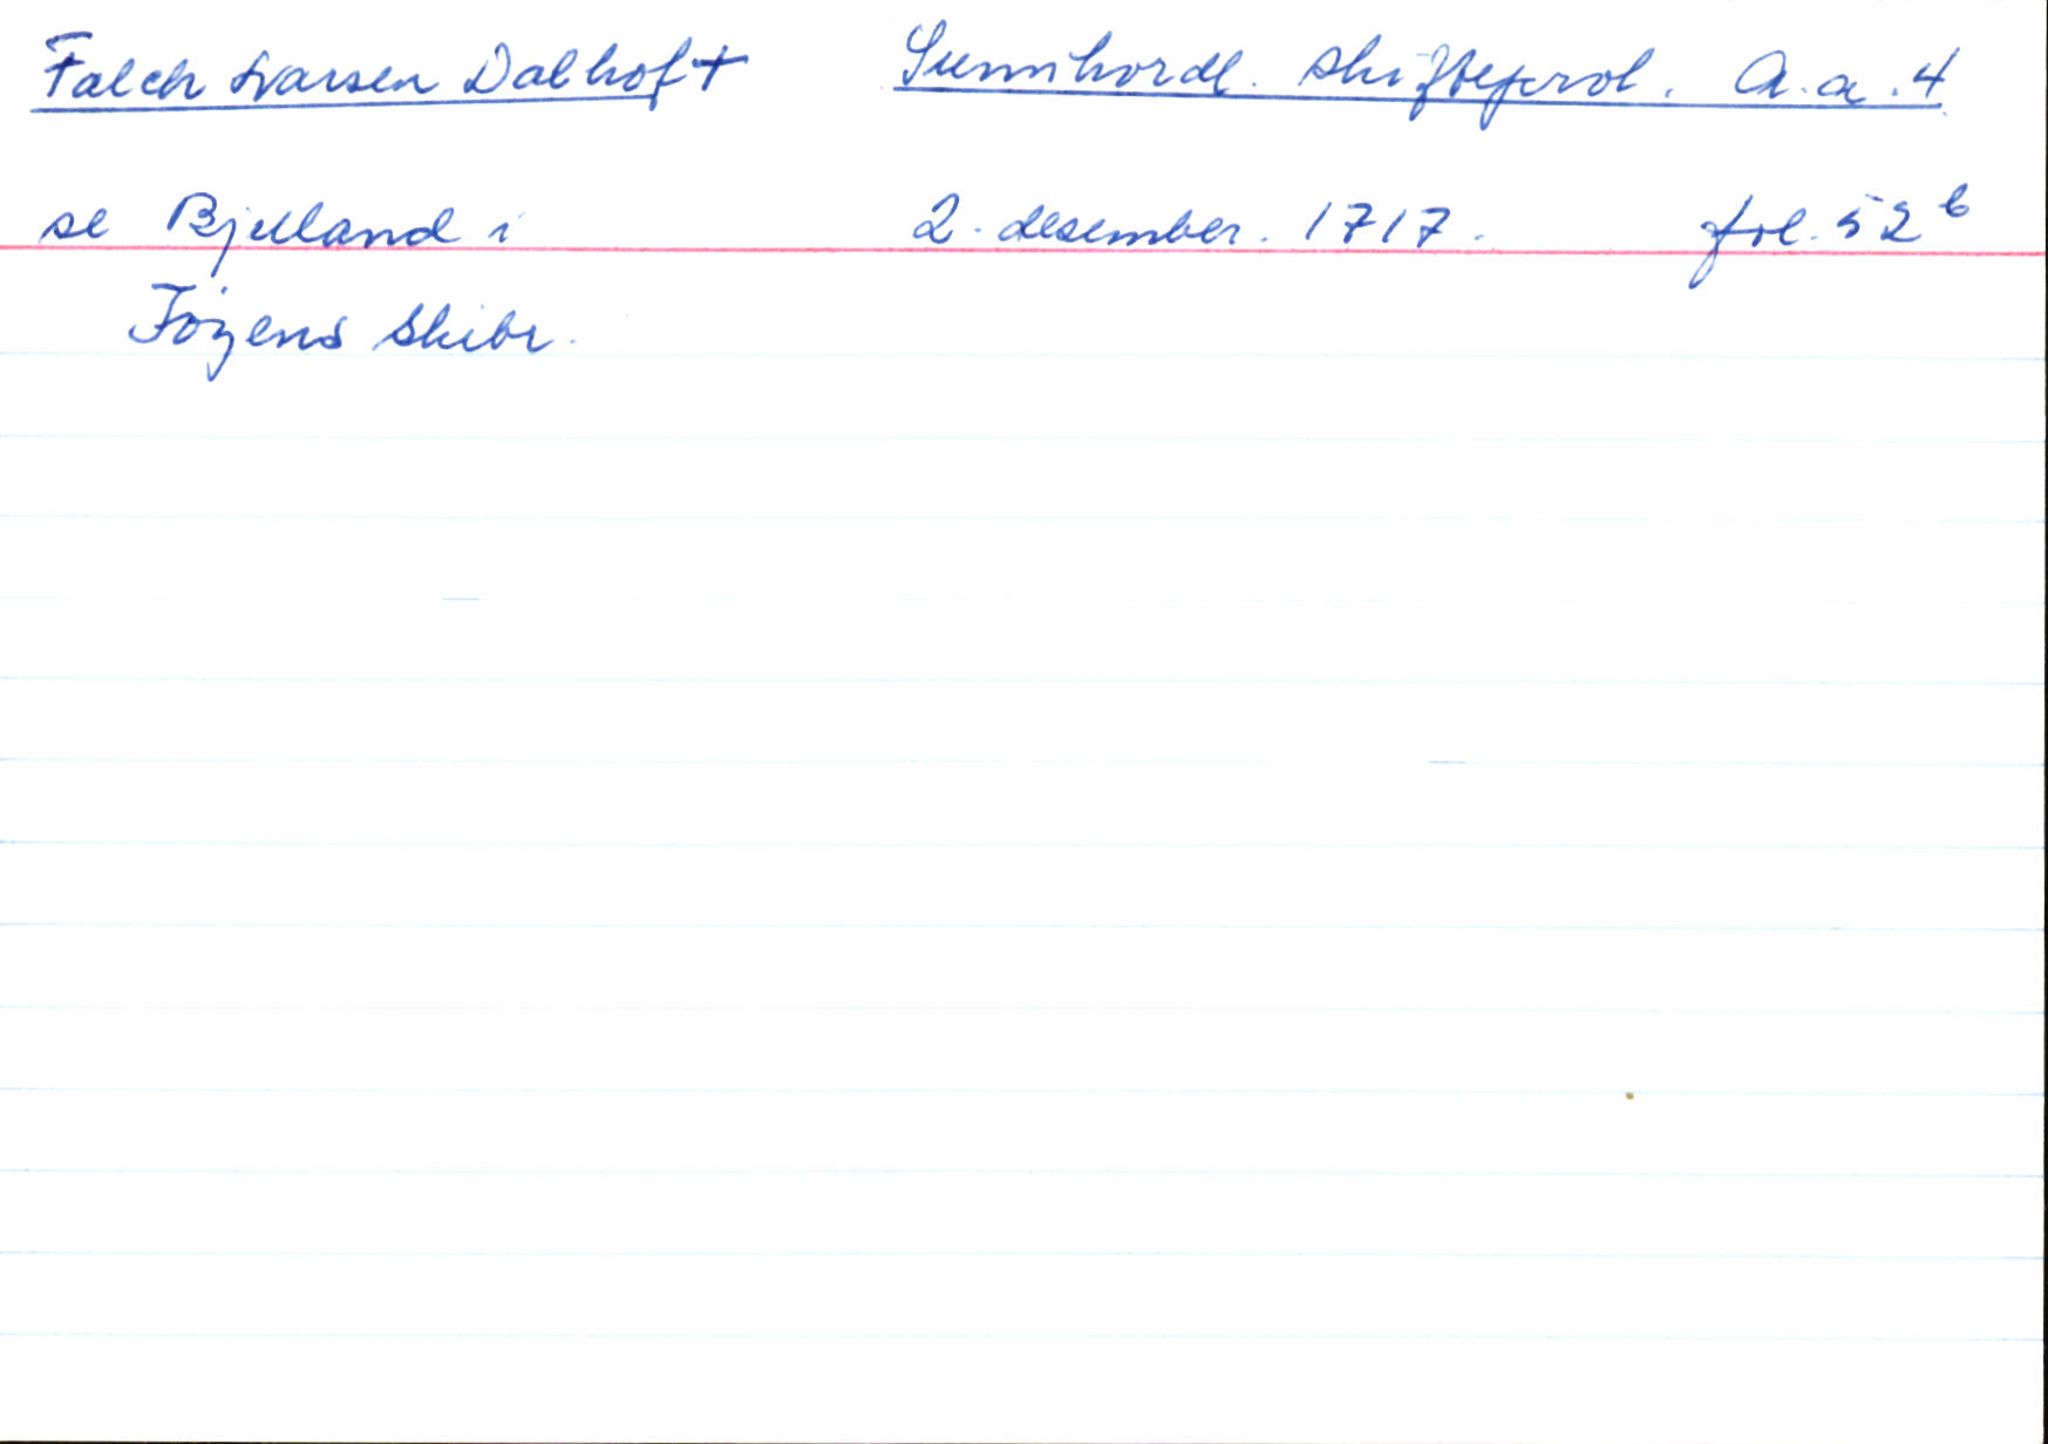 Falch Ivarsen Dalhoft Sunnhordl. skifteprot. A.a.4
se Bjelland i 2. desember. 1717. fol. 52b
Föyens skibr.